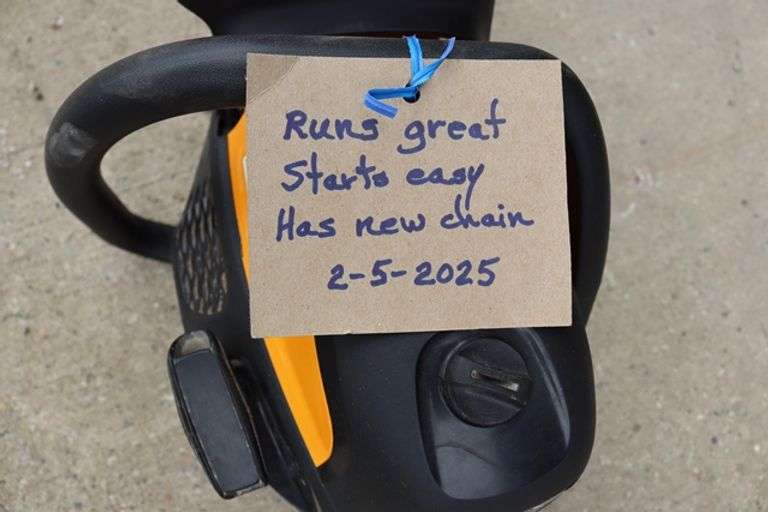 Runs great
Starts easy
Has new chain
2-5-2025